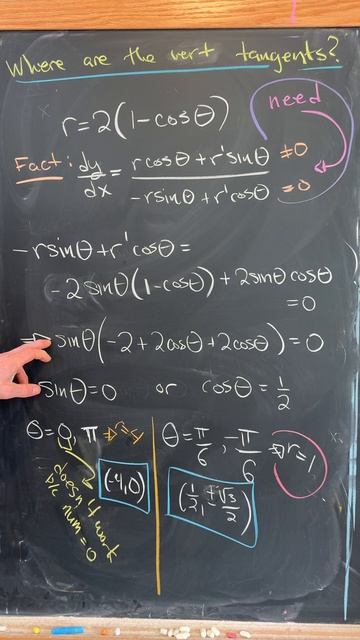 Where are the vert tangents?
r=2(1-cosθ)
need
Fact: dy/dx = (rcosθ+r'sinθ)/(-rsinθ+r'cosθ) ≠0 =0
-rsinθ+r'cosθ=
-2sinθ(1-cosθ)+2sinθcosθ
=0
⇒ sinθ(-2+2cosθ+2cosθ)=0
sinθ=0 or cosθ=1/2
θ=0, π
θ=π/6, -π/6 ⇒ r=1
doesn't work
b/c num=0
(-4,0)
(1/2, ±√3/2)